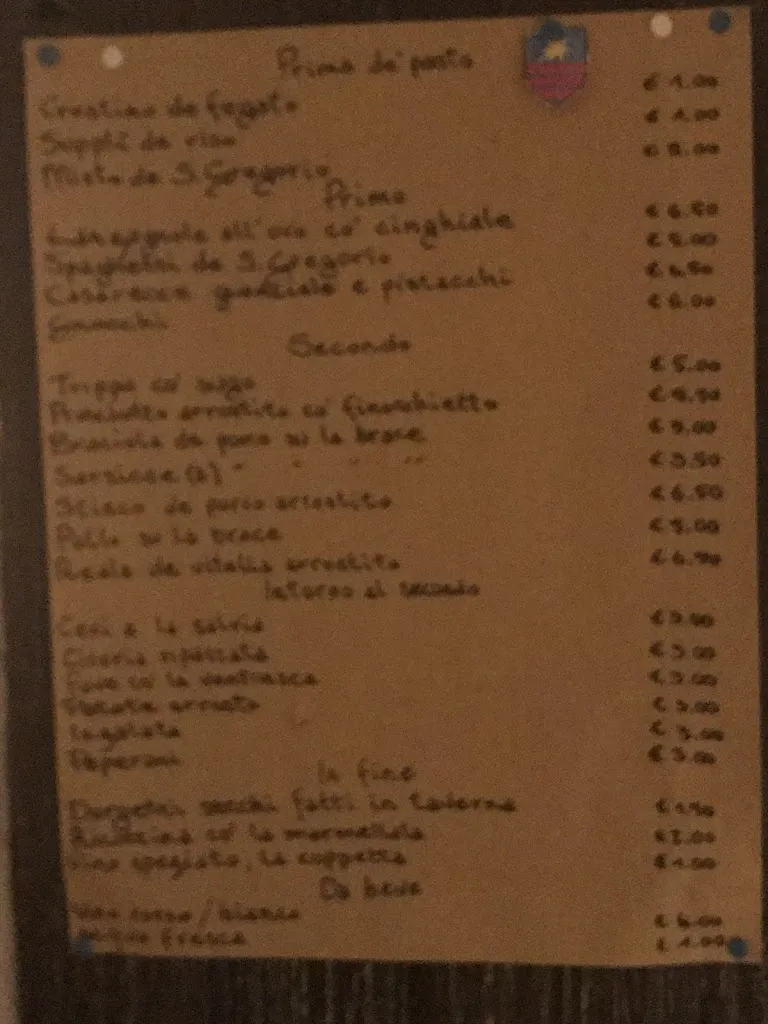 Primo de' pasto
Crostino de fegato € 1.00
Supplì de riso € 1.00
Misto de S. Gregorio € 8.00
Primo
all'ovo co' cinghiale € 6.50
Spaghetti de S. Gregorio € 5.00
Casarecce guanciale e pistacchi € 6.50
Gnocchi € 6.00
Secondo
Trippa co' sugo € 5.00
Prosciutto arrostito co' finocchietto
Braciola de porco su la brace
Sarsicce (2) " " " " € 3.50
Stinco de porco arrostito € 6.50
Pollo su la brace € 5.00
Reale de vitella arrostito
Intorno al secondo
Ceci a la salvia
Cicoria ripassata € 3.00
Fave co' la ventresca € 3.00
Patate arrosto € 3.00
Insalata € 3.00
Peperoni € 3.00
In fine
secchi fatti in taverna € 1.50
co' la marmellata € 2.00
Vino speziato, la coppetta € 1.00
Da beve
Vino rosso / bianco € 6.00
Acqua fresca € 1.00